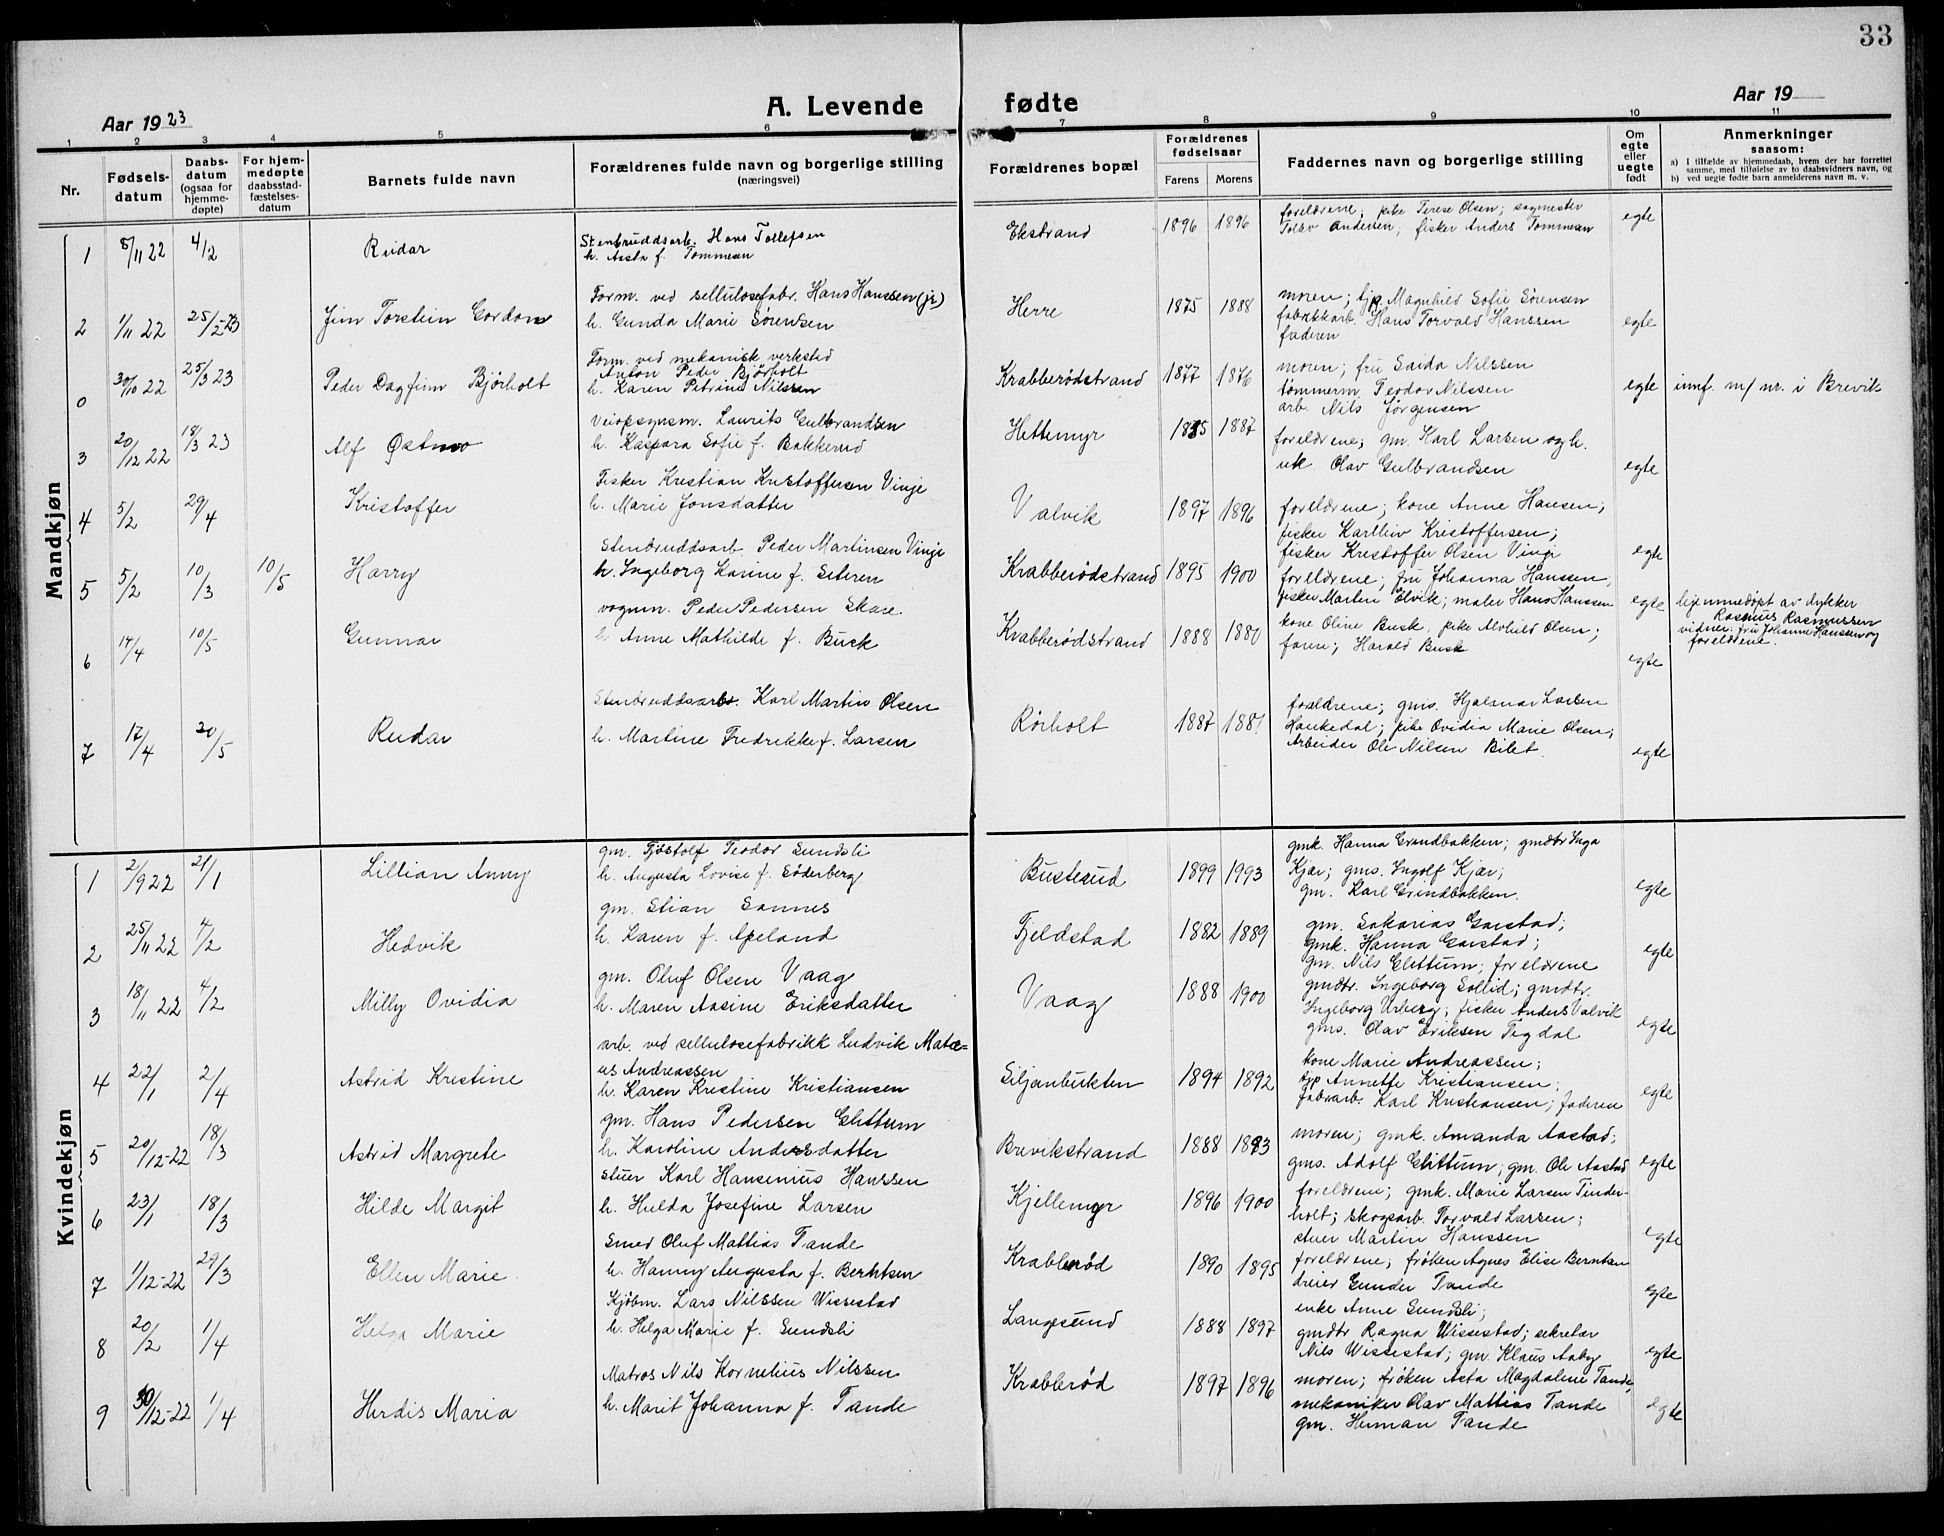 33
Aar 1923
A. Levende fødte
Aar 19
1 2 3 4 5 6 7 8 9 10 11
Nr.
Fødsels-datum
Daabs-datum (ogsaa for hjemme-døpte)
For hjem-medøpte daabsstad-fæstelses-datum
Barnets fulde navn
Forældrenes fulde navn og borgerlige stilling
(næringsvei)
Forældrenes bopæl
Forældrenes fødselsaar
Farens
Morens
Faddernes navn og borgerlige stilling
Om egte eller uegte født
Anmerkninger
saasom:
a) I tilfælde av hjemmedaab, hvem der har forrettet samme, med tilføielse av to daabsvidners navn, og
b) ved uegte fødte barn anmelderens navn m. v.
Mandkjøn
1 8/11 22 4/2 Reidar
Stenbruddsarb. Hans Tollefsen
h. Aasta f. Tommesen
Ekstrand 1896 1896
forelærene; pike Terese Olsen; sagmester
Tolav Andersen; fisker Anders Tommesen
egte
2 1/11 22 25/2-23 Jim Torstein Gordon
Form. ved sellulosefabr. Hans Hanssen (jr)
h. Gunda Marie Sørensen
Herre 1875 1888
moren; tjp. Magnhild Sofie Sørensen
fabrikkarb. Hans Torvald Hanssen
faderen
egte
0 30/10 22 25/3 23 Peder Dagfinn Bjørholt
Form. ved mekanisk verksted
Anton Peder Bjørholt
h. Karen Petrine Nilssen
Krabberødstrand 1877 1876
moren; fru Saida Nilssen
tømmerm. Teodor Nilssen
arb. Nils Jørgensen
egte
innf. m/ nr. i Brevik
3 20/12 22 18/3 23 Alf Østmo
Veiopsynsm. Laurits Gulbrandsen
h. Kaspara Sofie f. Bakkerud
Hettemyr 1887
forelærene; gm. Karl Larsen og h.
uk. Olav Gulbrandsen
egte
4 5/2 29/4 Kristoffer
Fisker Kristian Kristoffersen Vinje
h. Marie Jonsdatter
Valvik 1897 1896
forelærene; kone Anne Hansen;
fisker Karlleiv Kristoffersen;
fisker Kristoffer Olsen Vinje
egte
5 5/2 10/3 10/5 Harry
Stenbruddsarb. Peder Martinsen Vinje
h. Ingeborg Karine f. Seteren
Krabberødstrand 1895 1900
forelærene; fru Johanna Hanssen,
fisker Martin Elvik; maler Hans Hanssen
egte
hjemmedøpt av dykker
Rasmus Rasmussen
vidner: fru Johanne Hanssen og
forelærene.
6 14/4 10/5 Gunnar
vognm. Peder Pedersen Skare
h. Anne Mathilde f. Buck
Krabberødstrand 1888 1880
kone Oline Busk, pike Alvhild Olsen;
faren; Harald Busk
egte
7 17/4 20/5 Reidar
Stenbruddsarb. Karl Martin Olsen
h. Martine Fredrikke f. Larsen
Rørholt 1887 1881
forældrene; gms. Hjalmar Larsen
Haukedal; pike Ovidia Marie Olsen;
Arbeider Ole Nilsen Bilet.
egte
Kvindekjøn
1 2/9 22 21/1 Lillian Anny
gm. Tjøstolf Teodor Sundsli
h. Augusta Lovise f. Søderberg
Busterud 1899 1993
gmk. Hanna Grindbakken; gmdtr Inga
Kjær; gms. Ingolf Kjær;
gm. Karl Grindbakken.
egte
2 25/11 22 4/2 Hedvik
gm. Stian Sannes
h. Karen f. Apeland
Fjeldstad 1882 1889
gm. Sakarias Garstad;
gmk. Hanna Garstad;
gm. Nils Glittum; forelærene
egte
3 18/11 22 4/2 Milly Ovidia
gm. Oluf Olsen Vaag
h. Maren Aasine Eriksdatter
Vaag 1888 1900
gmdtr. Ingeborg Sollid; gmdtr.
Ingeborg Urberg; fisker Anders Valvik
gms. Olav Eriksen Tegdal
egte
4 22/1 2/4 Astrid Kristine
arb. ved sellulosefabrikk Ludvik Matæ-
us Andreassen
h. Karen Kristine Kristiansen
Siljanbukten 1894 1892
kone Marie Andreassen;
tjp Annette Kristiansen;
fabrarb. Karl Kristiansen; faderen
egte
5 20/12-22 18/3 Astrid Margrete
gm. Hans Pedersen Glittum
h. Karoline Andersdatter
Brevikstrand 1888 1893
moren; gmk. Amanda Aastad;
gms. Adolf Glittum; gm. Ole Aastad
egte
6 23/1 18/3 Hilde Margit
stuer Karl Hansenius Hanssen
h. Hulda Josefine Larsen
Kjellemyr 1896 1900
forelærene; gmk. Marie Larsen Tinder-
holt; skogsarb. Torvald Larsen;
stuer Martin Hanssen
egte
7 1/12-22 29/3 Ellen Marie
Smed Oluf Mattias Tande
h. Hanny Augusta f. Berntsen
Krabberød 1890 1895
forelærene; frøken Agnes Elise Berntsen
dreier Gunder Tande
egte
8 20/2 1/4 Helga Marie
Kjøbm. Lars Nilssen Wissestad
h. Helga Marie f. Sundsli
Langesund 1888 1897
enke Anne Sundsli;
gmdtr Ragna Wissestad; sekretær
Nils Wissestad; gm. Klaus Aaby
egte
9 30/12-22 1/4 Herdis Maria
Matros Nils Kornelius Nilssen
h. Marit Johanna f. Tande
Krabberød 1897 1896
moren; frøken Asta Magdalene Tande,
mekaniker Olav Mattias Tande
gm. Herman Tande
egte